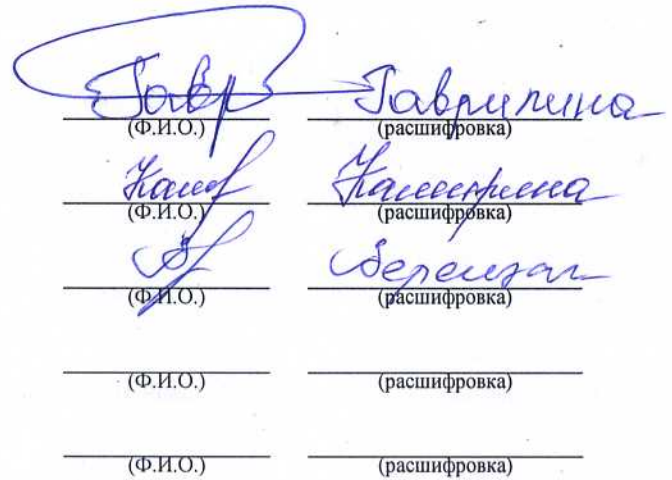 Гавр Гаврилина
(Ф.И.О.) (расшифровка)
Каш Каширина
(Ф.И.О.) (расшифровка)
(Ф.И.О.) (расшифровка)
(Ф.И.О.) (расшифровка)
(Ф.И.О.) (расшифровка)